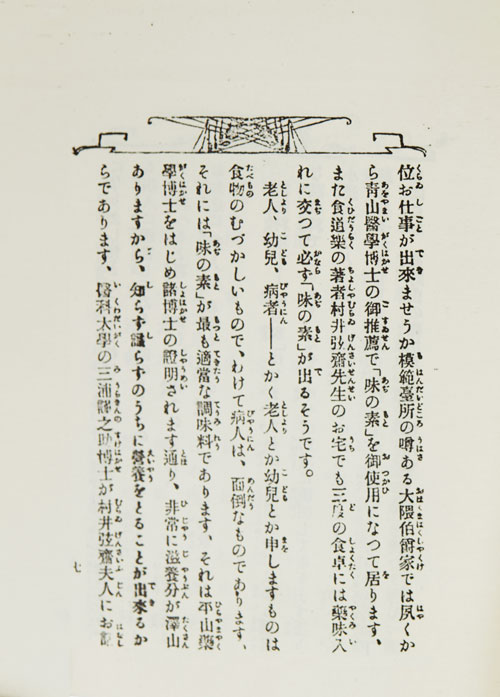 位お仕事が出來ませうか模範臺所の噂ある大隈伯爵家では夙くか
ら靑山醫學博士の御推薦で「味の素」を御使用になつて居ります、
また食道樂の著者村井弦齋先生のお宅でも三度の食卓には藥味入
れに交つて必ず「味の素」が出るそうです。
老人、幼兒、病者――とかく老人とか幼兒とか申しますものは
食物のむづかしいもので、わけて病人は、面倒なものであります、
それには「味の素」が最も適當な調味料であります、それは平山藥
學博士をはじめ諸博士の證明されます通り、非常に滋養分が澤山
ありますから、知らず識らずのうちに營養をとることが出來るか
らであります、醫科大學の三浦謹之助博士が村井弦齋夫人にお話
七